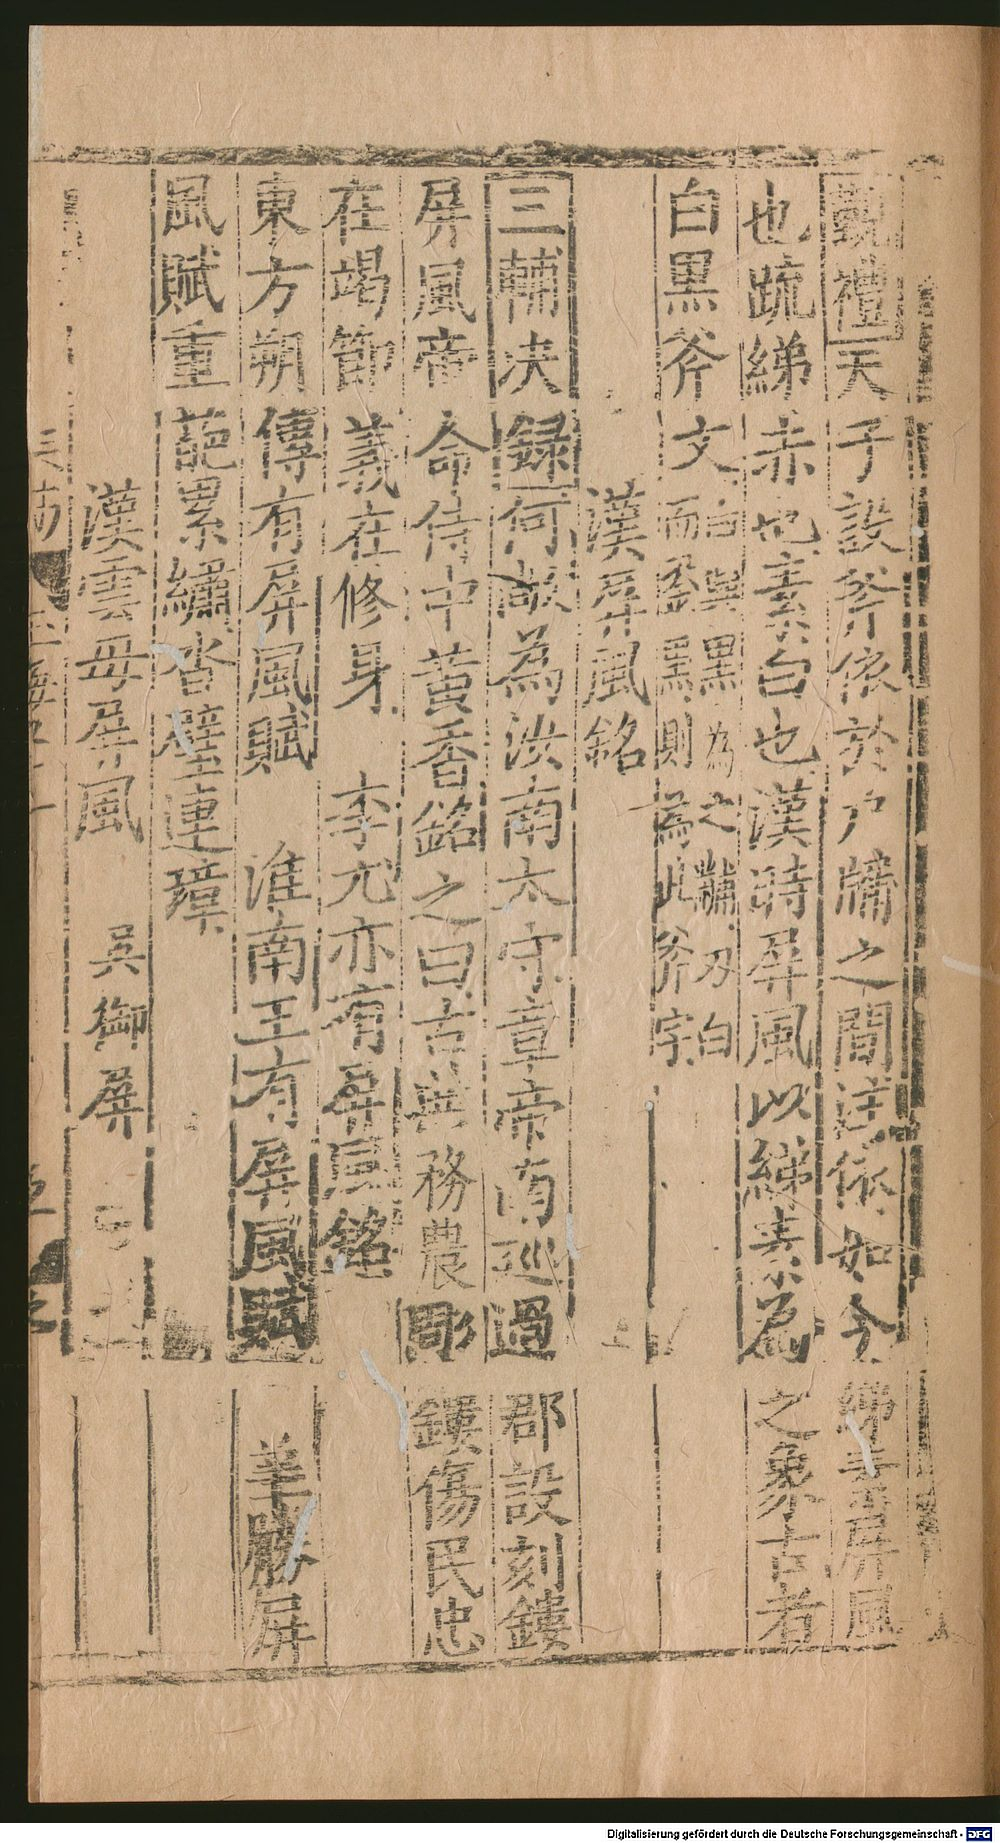 覲禮天子設斧依於户牖之間注依如今綈素屏風
也疏綈赤也素白也漢時屏風以綈素為之象古者
白黒斧文白與黒為之黼刃白
而銎黒則為此斧字
漢屏風銘
三輔决録何敞為汝南太守章帝南廵過郡設刻鏤
屏風帝命侍中黄香銘之曰古典務農彫鏤傷民忠
在竭節義在修身 李尤亦有屏風銘
東方朔傳有屏風賦 淮南王有屏風賦 羊勝屏
風賦重葩累繡沓壁連璋
漢雲母屏風 吳御屏
Digitalisierung gefördert durch die Deutsche Forschungsgemeinschaft - DFG